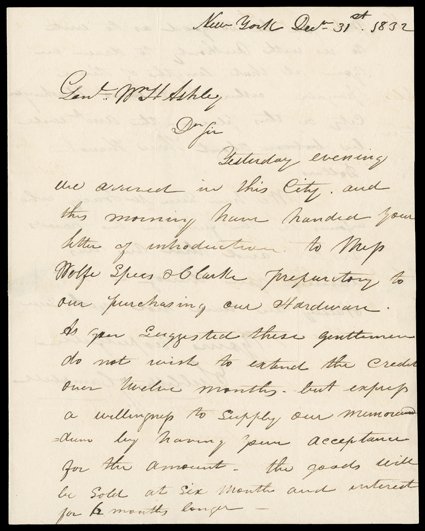 New York Decr 31st. 1832
Genl. Wm H Ashley
Dr Sir
Yesterday evening
we arrived in this City. and
this morning have handed your
letter of introduction to Mess
Wolfe Spies & Clarke preparatory to
our purchasing our Hardware.
As you Suggested these gentlemen
do not wish to extend the Credit
over twelve months. but express
a willingness to Supply our Memoran
=dum by having your acceptance
for the amount. the goods will
be Sold at Six Months and interest
for 6 months longer —